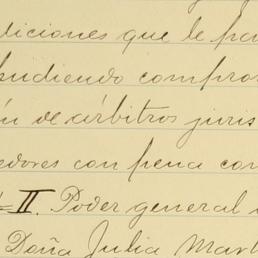 diciones que le pa
pudiendo compro
ón de árbitros juris
edores con pena con
= II. Poder general
Doña Julia Mart